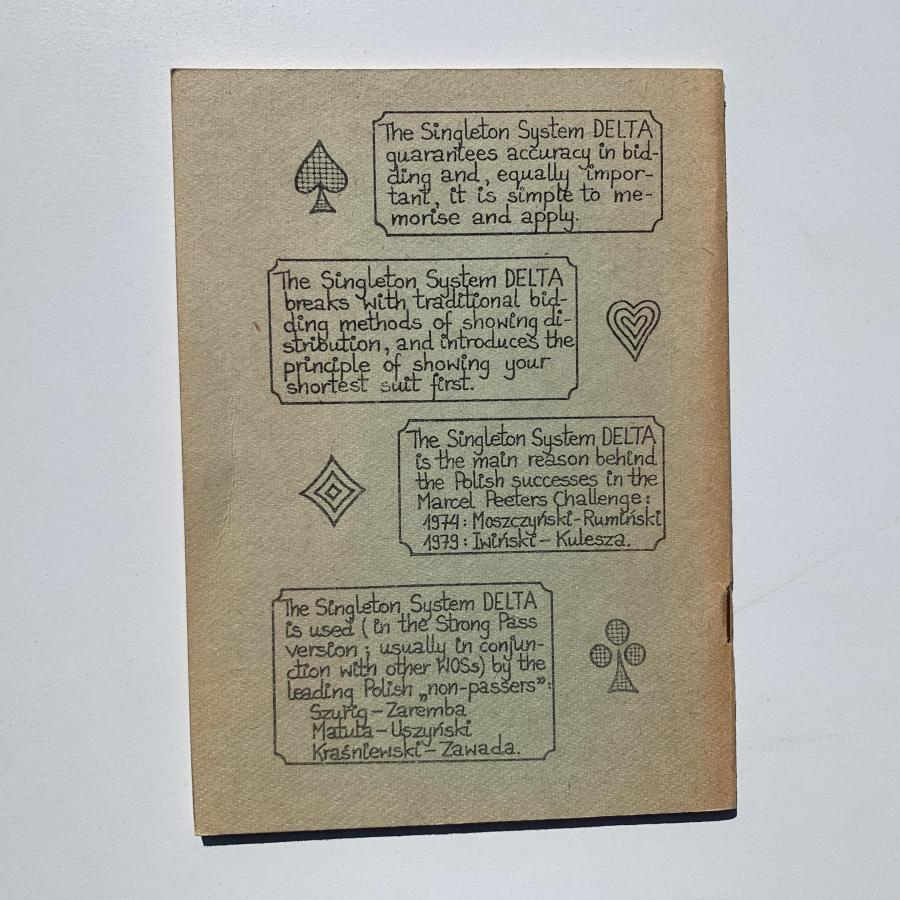 The Singleton System DELTA
guarantees accuracy in bid-
ding and, equally impor-
tant, it is simple to me-
morise and apply.
The Singleton System DELTA
breaks with traditional bid-
ding methods of showing di-
stribution, and introduces the
principle of showing your
shortest suit first.
The Singleton System DELTA
is the main reason behind
the Polish successes in the
Marcel Peeters Challenge:
1974: Moszczyński-Rumiński
1979: Iwiński - Kulesza.
The Singleton System DELTA
is used (in the Strong Pass
version; usually in conjun-
ction with other WOSs) by the
leading Polish „non-passers":
Szurig - Zaremba
Matuła - Uszyński
Kraśniewski - Zawada.